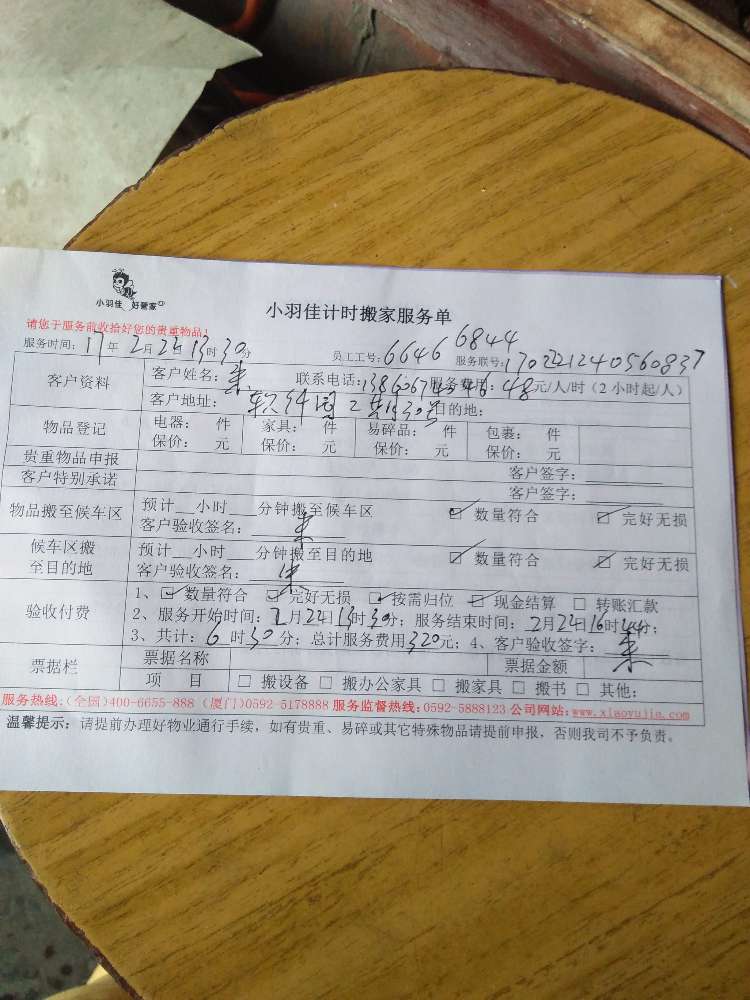 小羽佳 好管家
小羽佳计时搬家服务单
请您于服务前收拾好您的贵重物品!
服务时间: 17年2月24日13时30分 员工工号: 6646 6844 服务联号:
客户资料 客户姓名: 联系电话: 服务费用: 48元/人/时(2小时起/人)
客户地址: 软件园二期 目的地:
物品登记 电器: 件 家具: 件 易碎品: 件 包裹: 件
保价: 元 保价: 元 保价: 元 保价: 元
贵重物品申报 客户签字:
客户特别承诺 客户签字:
物品搬至候车区 预计__小时___分钟搬至候车区 ☑ 数量符合 ☑ 完好无损
客户验收签名:
候车区搬至目的地 预计__小时___分钟搬至目的地 ☑ 数量符合 ☑ 完好无损
客户验收签名:
验收付费 1、☑ 数量符合 ☑ 完好无损 ☑ 按需归位 ☑ 现金结算 □ 转账汇款
2、服务开始时间: 2月24日13时30分; 服务结束时间: 2月24日16时44分;
3、共计: 6时30分; 总计服务费用320元; 4、客户验收签字:
票据栏 票据名称 票据金额
项 目 □ 搬设备 □ 搬办公家具 □ 搬家具 □ 搬书 □ 其他:
服务热线:(全国)400-6655-888 (厦门)0592-5178888 服务监督热线:0592-5888123 公司网站:www.xiaoyujia.com
温馨提示: 请提前办理好物业通行手续, 如有贵重、易碎或其它特殊物品请提前申报, 否则我司不予负责。